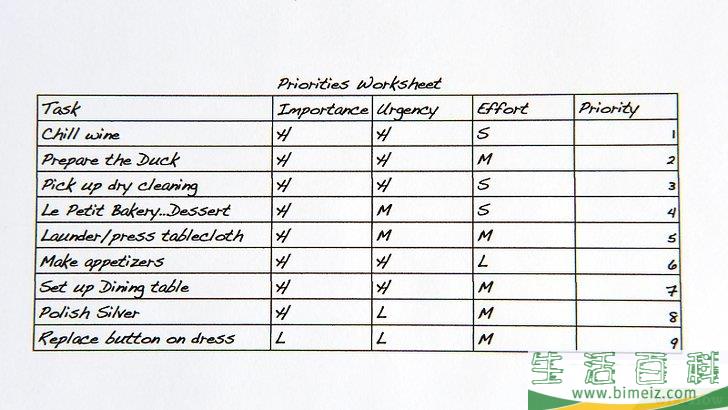 Priorities Worksheet
Task Importance Urgency Effort Priority
Chill wine H H S 1
Prepare the Duck H H M 2
Pick up dry cleaning H H S 3
Le Petit Bakery...Dessert H M S 4
Launder/press tablecloth H M M 5
Make appetizers H H L 6
Set up Dining table H H M 7
Polish Silver H L M 8
Replace button on dress L L M 9
生活百科
www.bimeiz.com